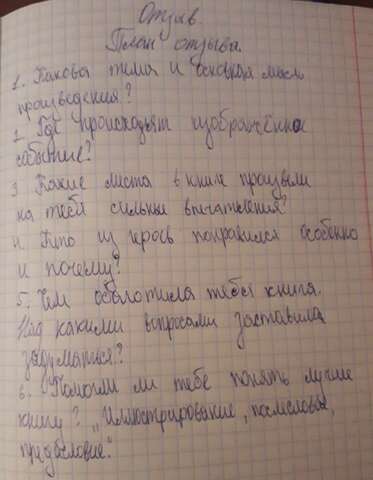 Отзыв.
План отзыва.
1. Какова тема и основная мысль
произведения?
2. Где происходят изображённые
события?
3. Какие места в книге произвели
на тебя сильные впечатления?
4. Кто из героев понравился особенно
и почему?
5. Чем обогатила тебя книга.
Над какими вопросами заставила
задуматься?
6. Помогли ли тебе понять лучше
книгу? "Иллюстрирование, послесловие,
предисловие."